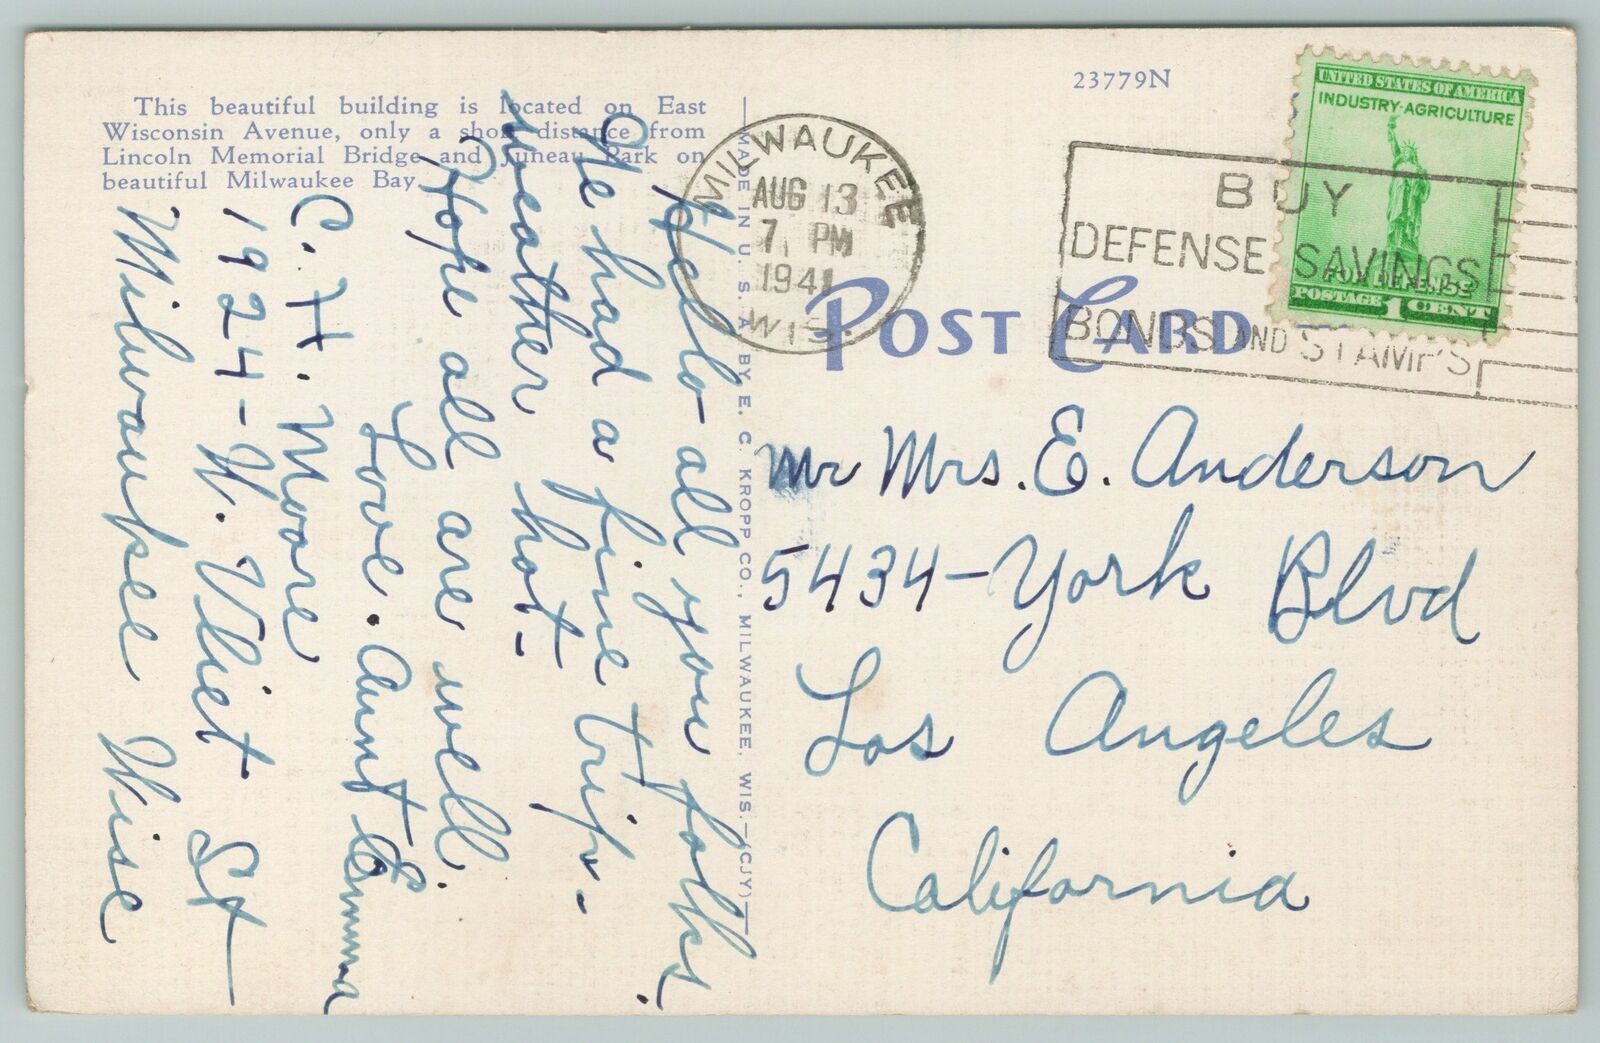 This beautiful building is located on East
Wisconsin Avenue, only a short distance from
Lincoln Memorial Bridge and Juneau Park on
beautiful Milwaukee Bay.
Hello- all you folks.
We had a fine trip.-
weather hot-
Hope all are well.
Love. Aunt Emma
C. H. Moore
1924-W. Vliet St
Milwaukee Wisc
MADE IN U. S. A. BY E. C. KROPP CO., MILWAUKEE, WIS.—(CJY)
23779N
MILWAUKEE
AUG 13
7 PM
1941
WIS.
BUY
DEFENSE SAVINGS
BONDS AND STAMPS
UNITED STATES OF AMERICA
INDUSTRY-AGRICULTURE
FOR DEFENSE
POSTAGE 1 CENT
POST CARD
Mr Mrs. E. Anderson
5434-York Blvd
Los Angeles
California